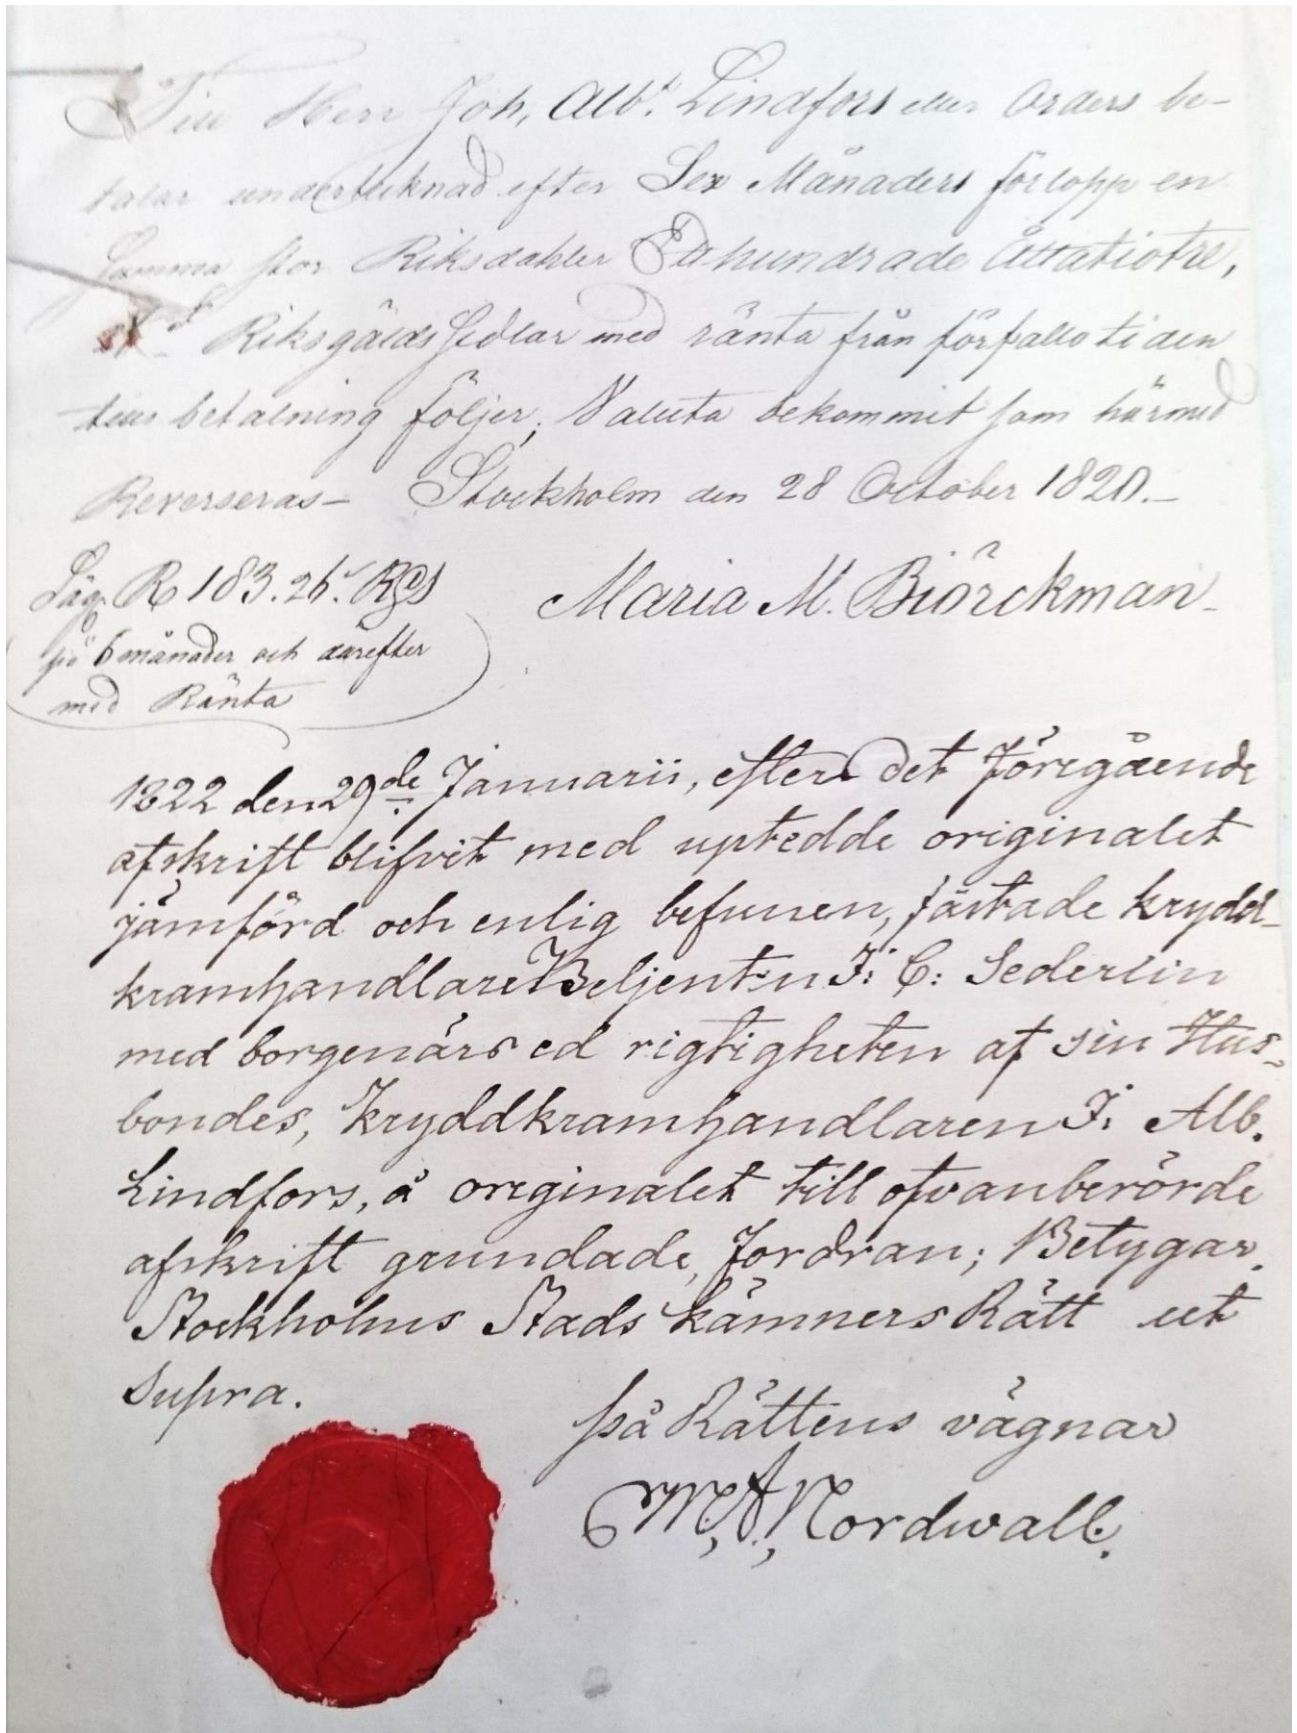 Till Herr Joh, Alb.t Lindfors eller Orders be-
talar undertecknad efter Sex Månaders förlopp en
Summa stor Riksdahler Etthundrade Åttatiotre,
Riksgälds Sedlar med ränta från förfallotiden
tills betalning följer; Valuta bekommit som härmed
Reverseras- Stockholm den 28 October 1820.-
Säg R 183. 26. Rgs
på 6 månader och därefter
med Ränta
Maria M. Biörckman-
1822 den 29de Januarii, efter det föregående
afskrift blifvit med uptedde originalet
jämförd och enlig befunen, fästade krydd-
kramhandlare Betjenten J: C: Sederlin
med borgenärs ed rigtigheten af sin Hus-
bondes, kryddkramhandlaren J: Alb.
Lindfors, å originalet till ofvanberörde
afskrift grundade, fordran; Betygar.
Stockholms Stads kämners Rätt ut
supra.
på Rättens vägnar
Nordwall.